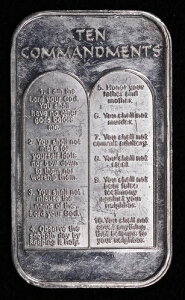 TEN
COMMANDMENTS
1. I am the
Lord your God.
You shall
have no other
gods before
me.
2. You shall not
make for
yourself idols
and bow down
to them nor
worship them.
3. You shall not
misuse the
name of the
Lord your God.
4. Observe the
Sabbath day by
keeping it holy.
5. Honor your
father and
mother.
6. You shall not
murder.
7. You shall not
commit adultery.
8. You shall not
steal.
9. You shall not
bear false
testimony
against your
neighbor.
10. You shall not
covet anything
that belongs to
your neighbor.